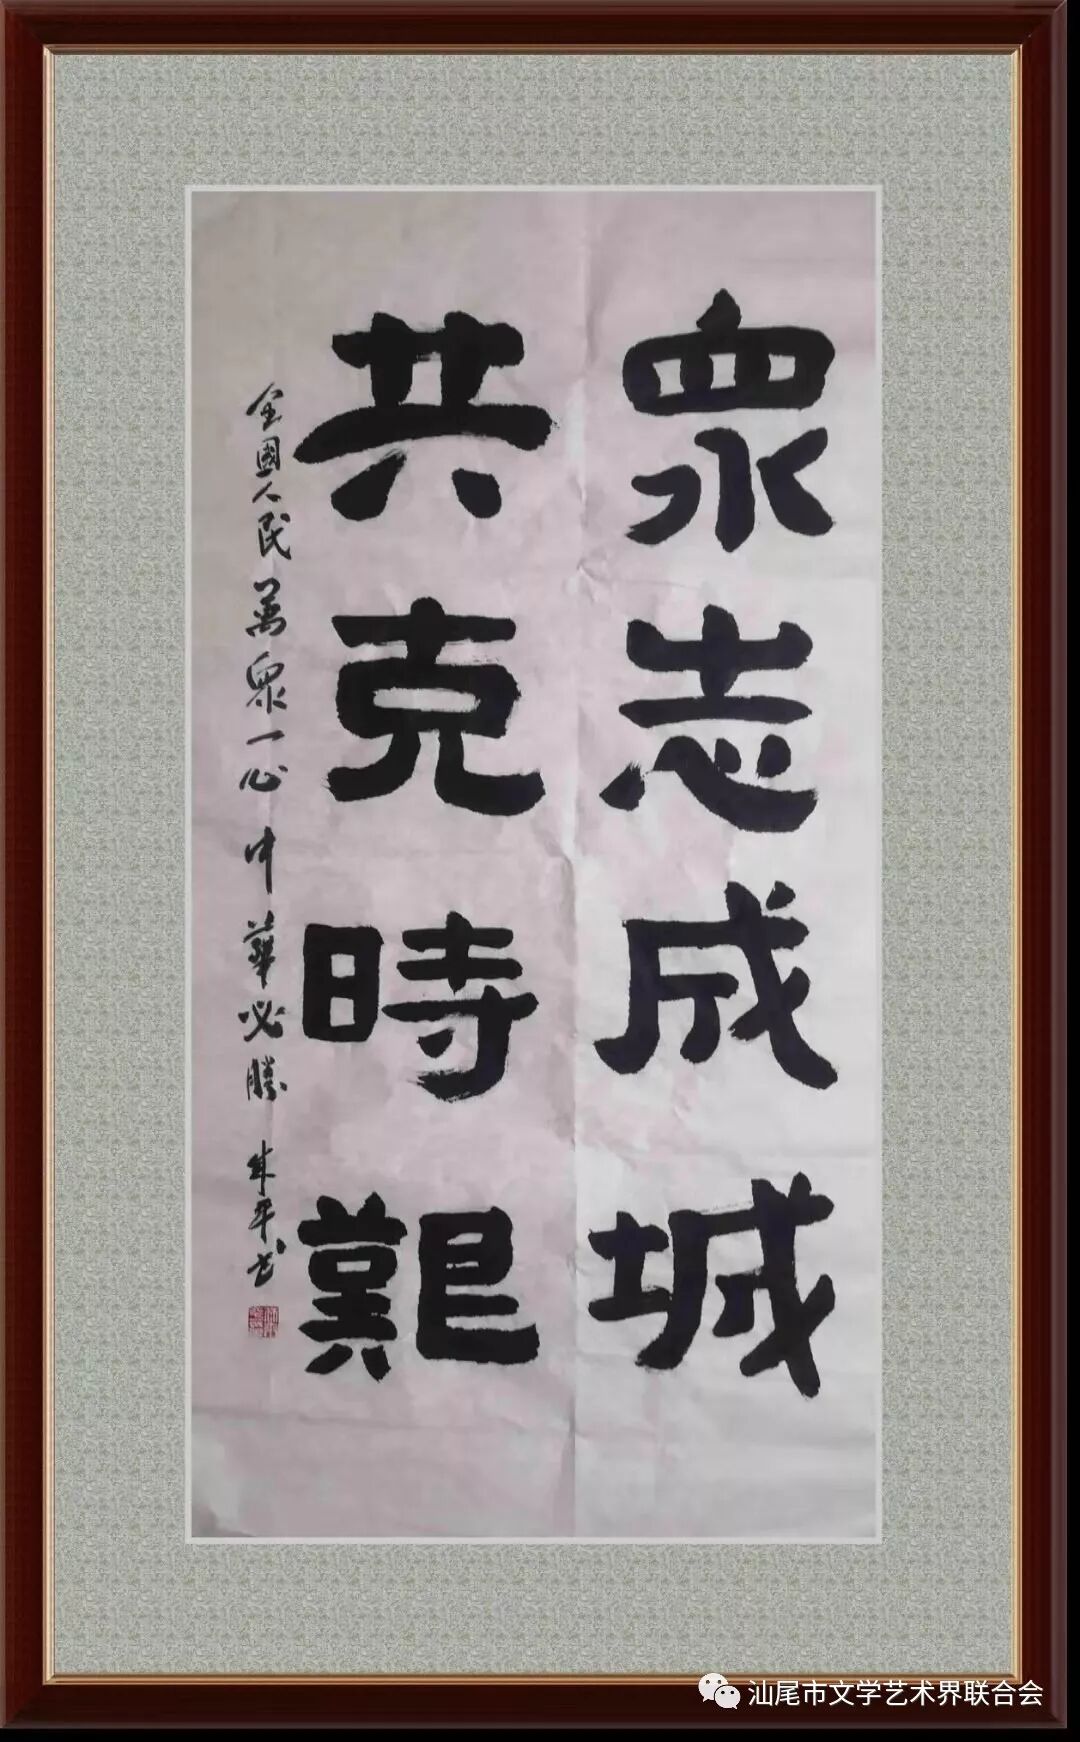 眾志成城
共克時艱
全國人民萬眾一心中華必勝 朱平书
汕尾市文学艺术界联合会